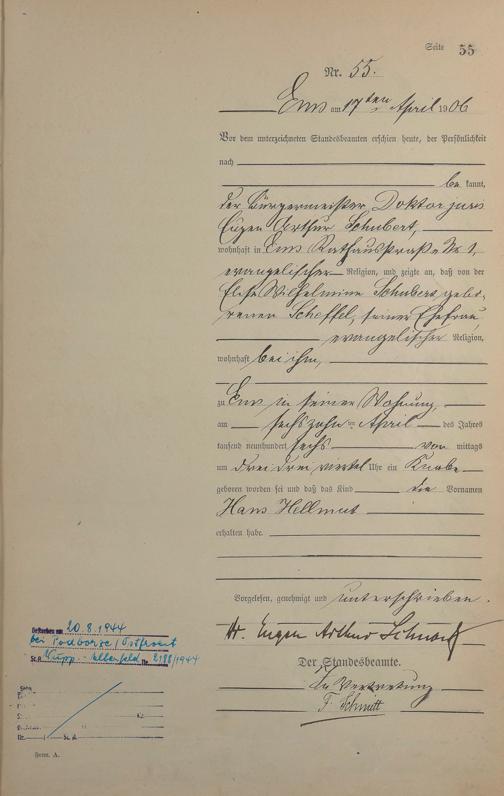 Seite 55
Nr. 55.
Ems am 17ten April 1906
Vor dem unterzeichneten Standesbeamten erschien heute, der Persönlichkeit
nach
be kannt,
der Bürgermeister Doktor juris
Eugen Arthur Schubert,
wohnhaft in Ems Rathausstraße Nr. 1,
evangelischer Religion, und zeigte an, daß von der
Else Wilhelmine Schubert gebo-
renen Scheffel, seiner Ehefrau
evangelischer Religion,
wohnhaft bei ihm,
zu Ems in seiner Wohnung,
am sechszehnten April des Jahres
tausend neunhundert sechs vor mittags
um drei drei viertel Uhr ein Knabe
geboren worden sei und daß das Kind die Vornamen
Hans Hellmut
erhalten habe.
Vorgelesen, genehmigt und unterschrieben.
Dr. Eugen Arthur Schubert
Der Standesbeamte.
In Vertretung
F. Schmitt
Gestorben am 20.8.1944
bei Podborze / Ostfront
St.A. Wupp.-Elberfeld Nr. 2198/1944
Form. A.